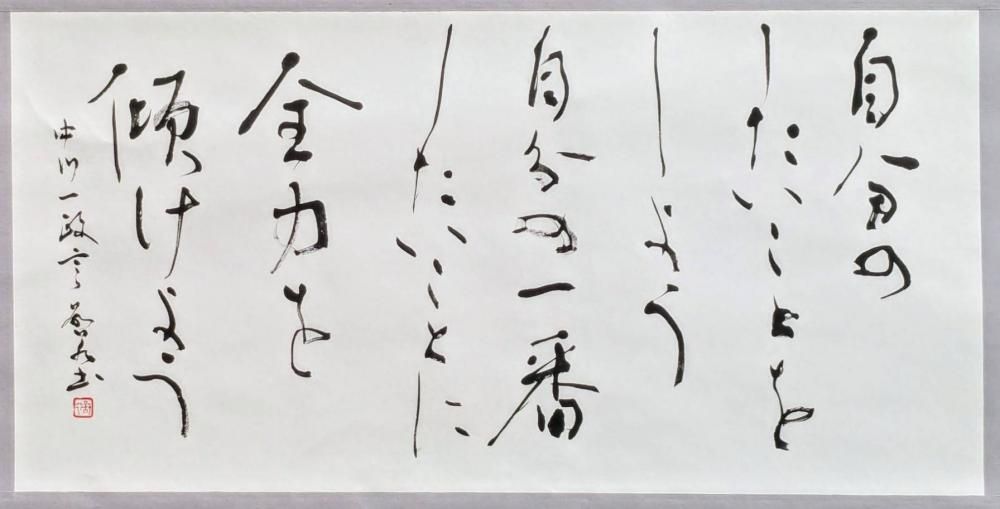 自分の
したいことを
しよう
自分の一番
したいことに
全力を
傾けよう
中川一政言